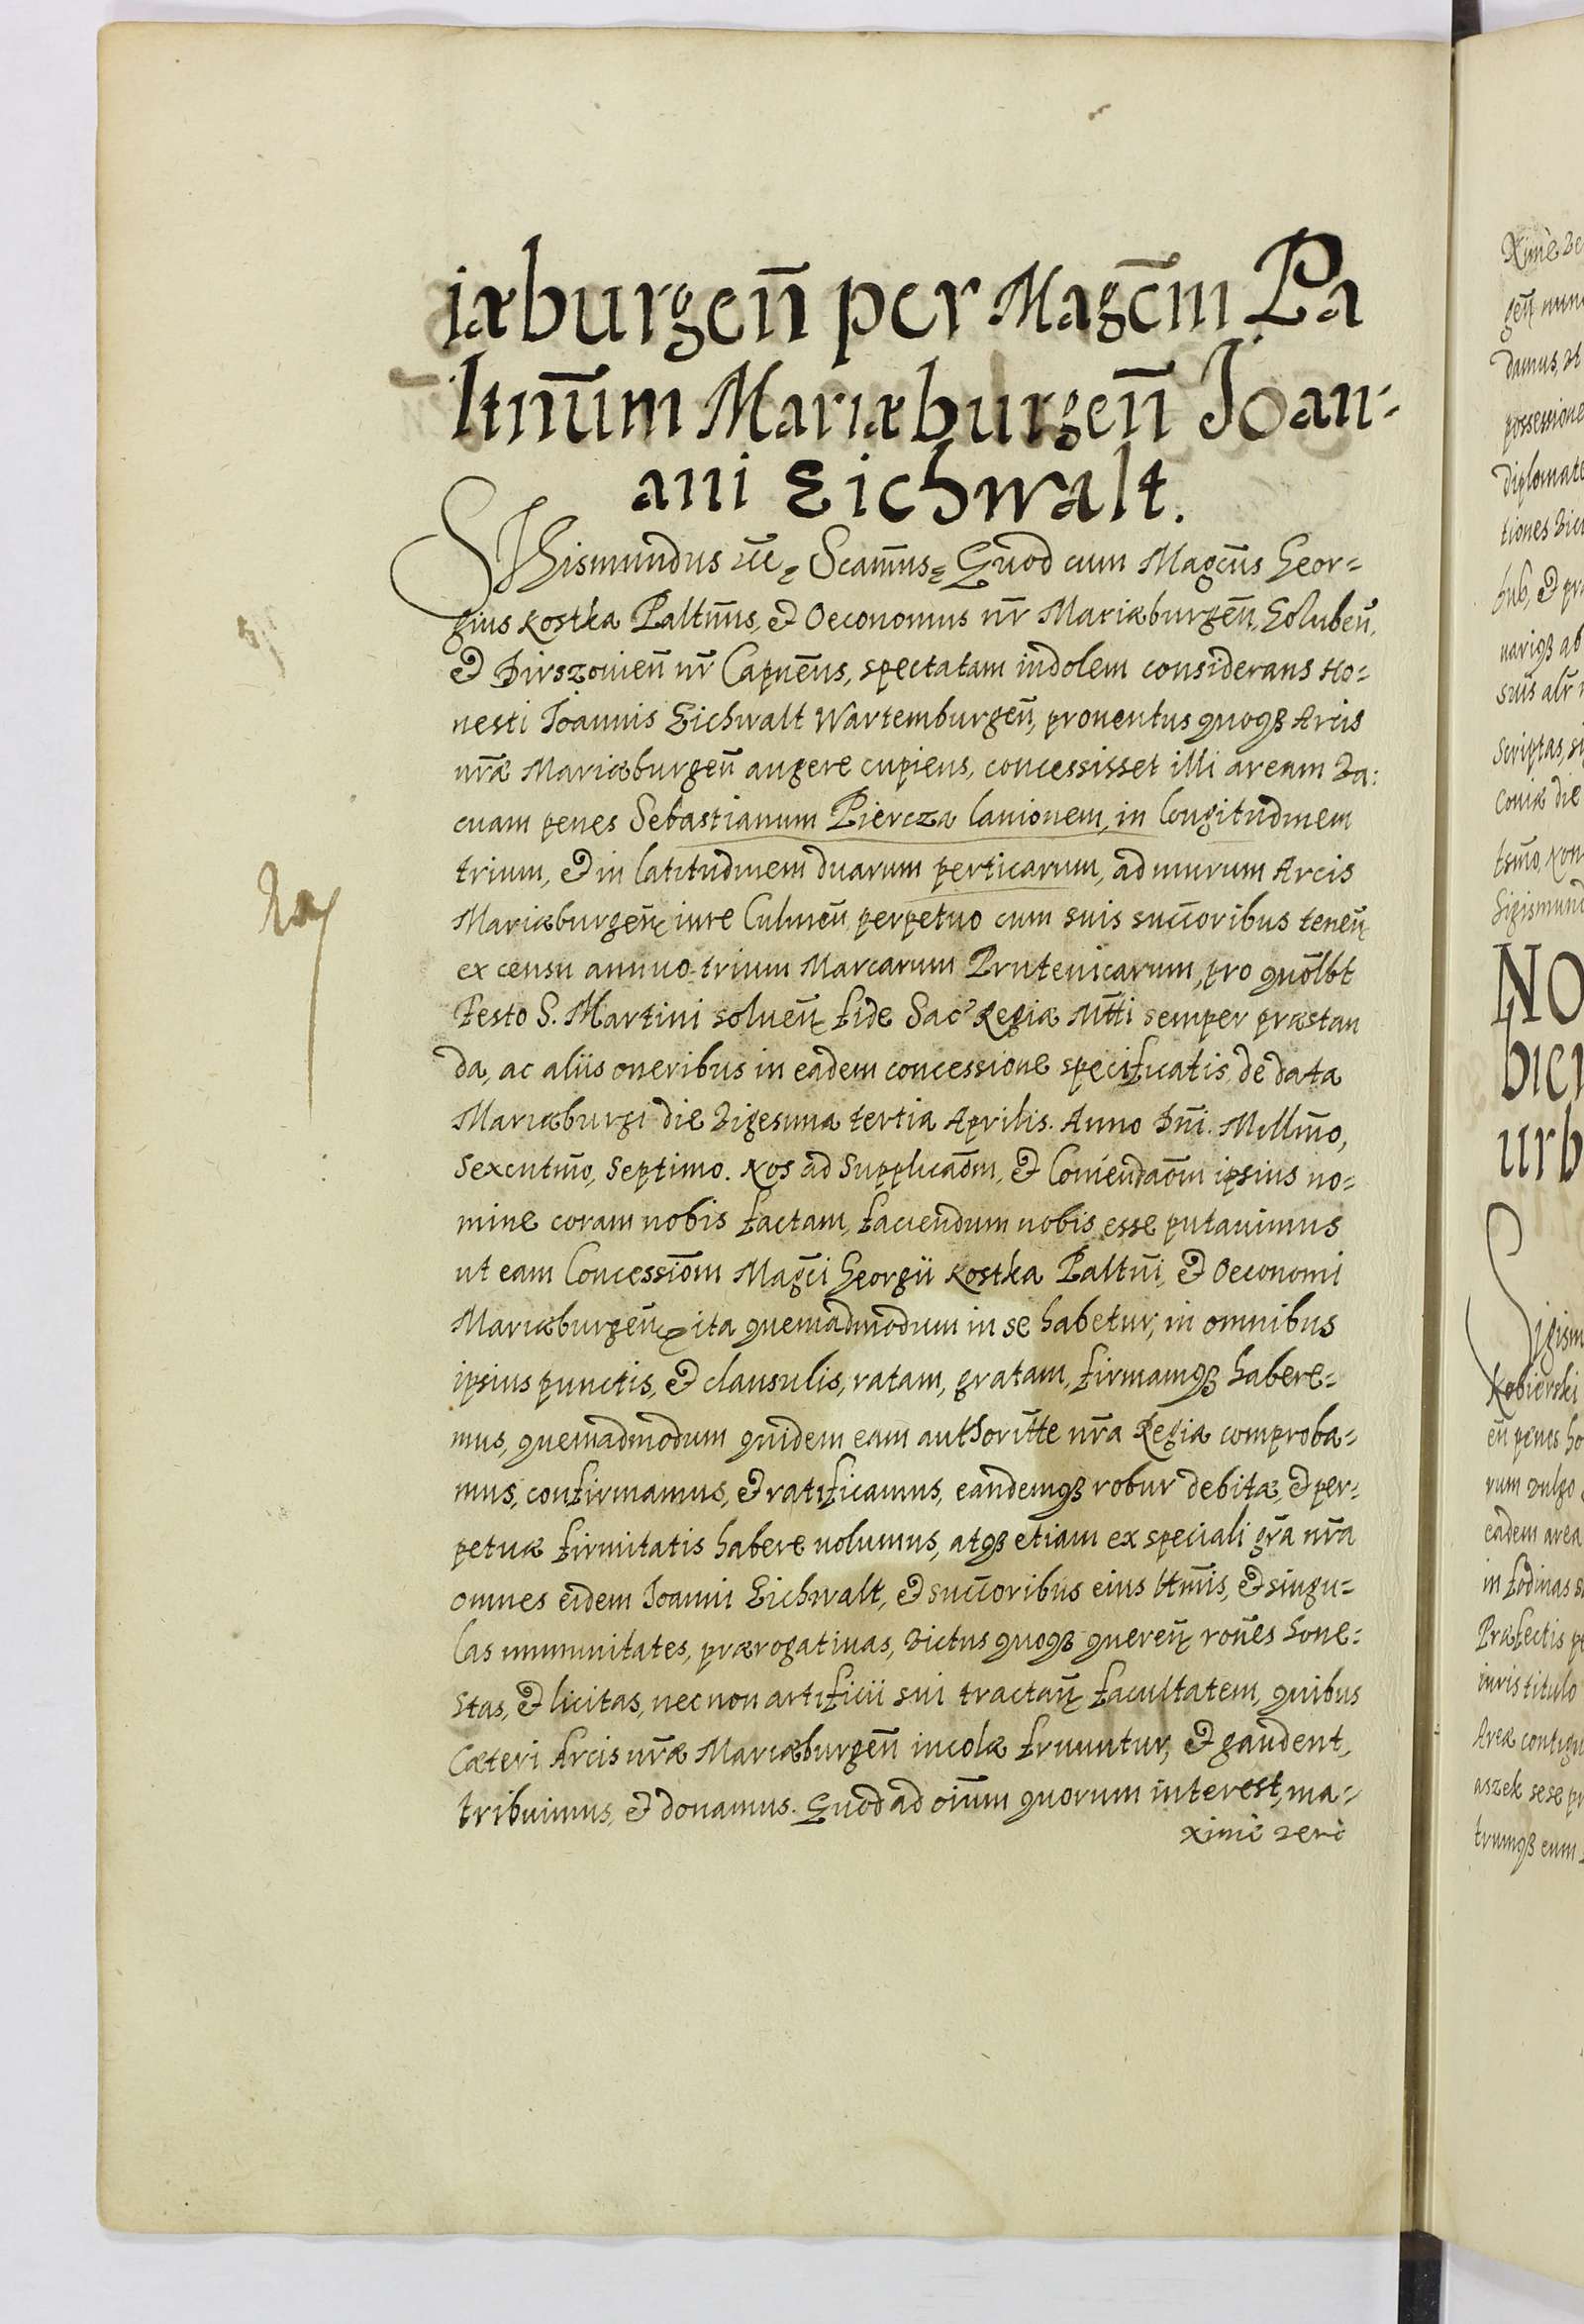 iæburgen̄ per Magc̄m Pa
ltnūm Mariæburgen̄ Joan-
ani Eichwalt.
SIgismundus etc̄ Scam̄us Quod cum Magcūs Geor=
gius Kostka Paltn̄us, et Oeconomus nr̄ Mariæburgen̄, Golubeñ,
et Dirszouien̄ nr̄ Capnēus, spectatam indolem considerans Ho=
nesti Joannis Eichwalt Wartemburgen̄, prouentus quoqȝ Arcis
nr̄æ Mariæburgen̄ augere cupiens, concessisset illi aream va:
cuam penes Sebastianum Piercza lanionem, in longitudinem
trium, et in latitudinem duarum perticarum, ad murum Arcis
Mariæburgen̄, iure Culmen̄ perpetuo cum suis succ̄oribus teneñ
ex censu annuo trium Marcarum Prutenicarum, pro quōlbt
Festo S. Martini soluen̄ fide Sac' Regiæ Mtti semper præstan
da, ac aliis oneribus in eadem concessione specificatis, de data
Mariæburgi die vigesima tertia Aprilis. Anno Dn̄i. Millm̄o,
Sexcntm̄o, Septimo. Nos ad Supplicaōm, et Comendaōm ipsius no=
mine coram nobis factam, faciendum nobis esse putauimus
ut eam Concessiōm Magc̄i Georgii Kostka Paltn̄i, et Oeconomi
Mariæburgen̄, ita quemadmodum in se habetur, in omnibus
ipsius punctis, et clausulis, ratam, gratam, firmamqȝ habere=
mus, quemadmodum quidem eam authoritte nr̄a Regia comproba=
mus, confirmamus, et ratificamus, eandemqȝ robur debitæ, et per=
petuæ firmitatis habere uolumus, atqȝ etiam ex speciali gr̄a nr̄a
omnes eidem Joanni Eichwalt, et succ̄oribus eius ltm̄is, et singu=
las immunitates, prærogatiuas, victus quoqȝ queren̄ ron̄es hone=
stas, et licitas, necnon artificii sui tractan̄ facultatem, quibus
Cæteri Arcis nr̄æ Mariæburgen̄ incolæ fruuntur, et gaudent,
tribuimus, et donamus. Quod ad oīum quorum interest, ma=
ximè verò